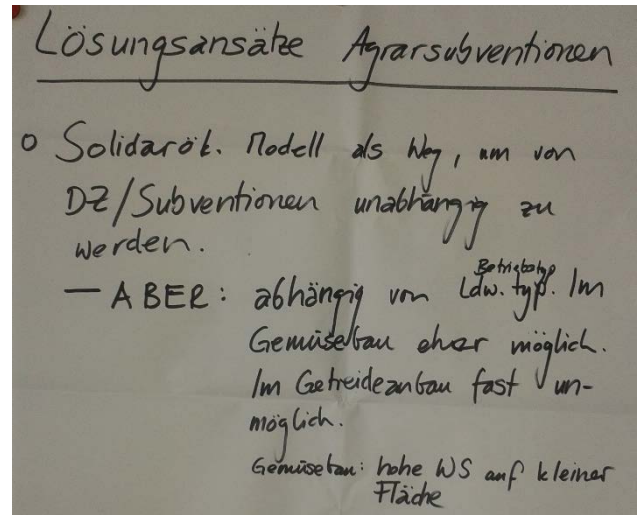 Lösungsansätze Agrarsubventionen
o Solidarök. Modell als Weg, um von
DZ/Subventionen unabhängig zu
werden.
Betriebstyp
— ABER: abhängig von Ldw. typ. Im
Gemüsebau eher möglich.
Im Getreideanbau fast un-
möglich.
Gemüsebau: hohe WS auf kleiner
Fläche